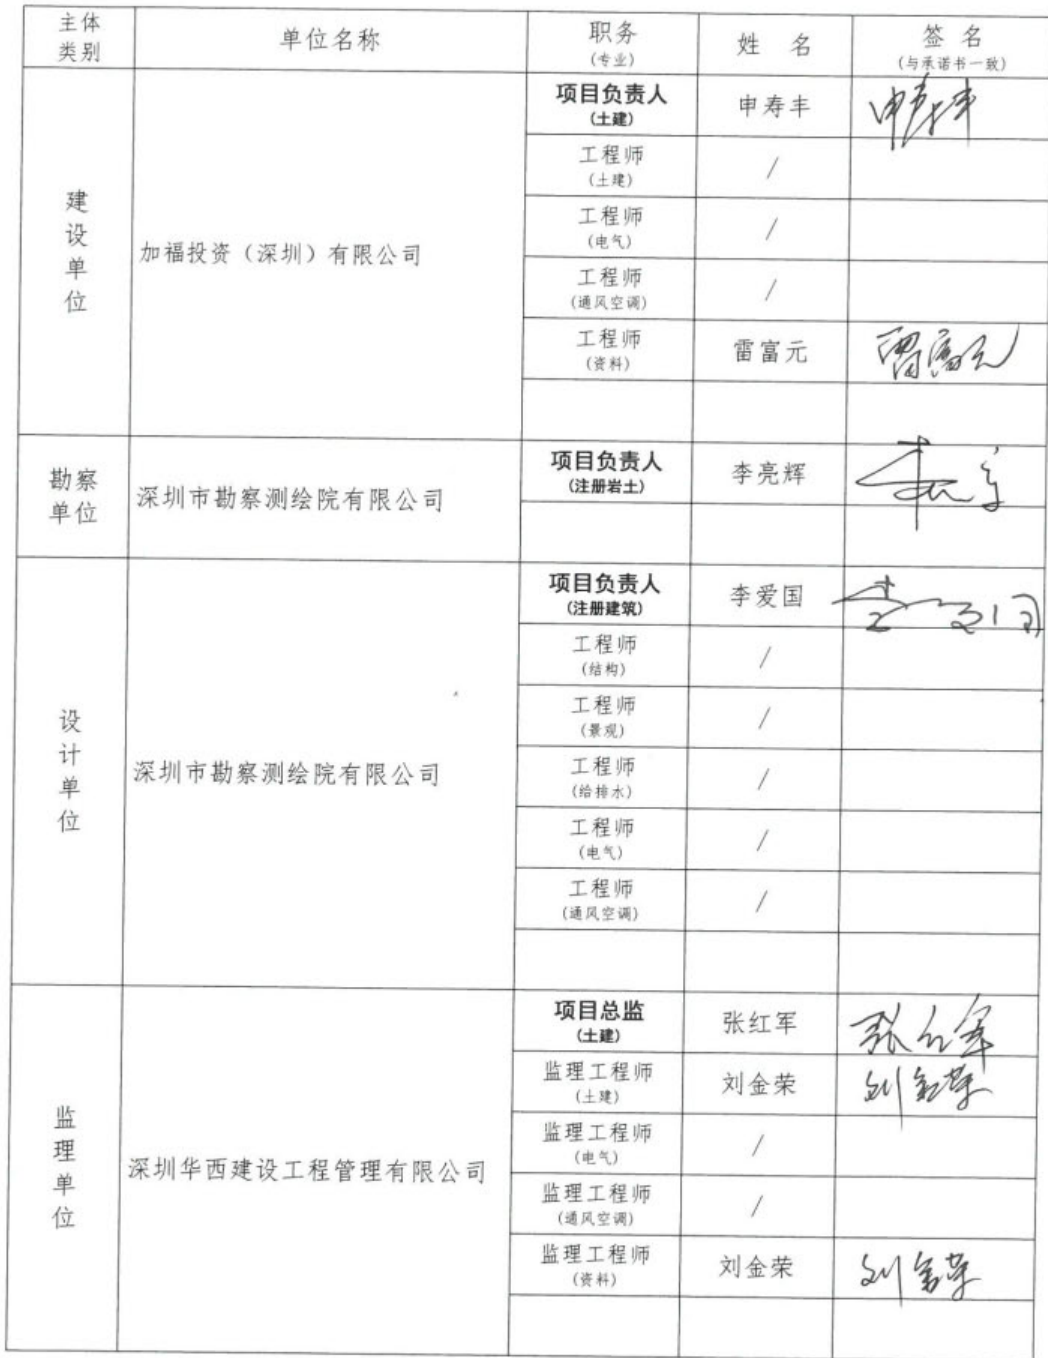 主体
类别
单位名称
职务
(专业)
姓 名
签 名
(与承诺书一致)
建
设
单
位
加福投资（深圳）有限公司
项目负责人
(土建)
申寿丰
申寿丰
工程师
(土建)
/
工程师
(电气)
/
工程师
(通风空调)
/
工程师
(资料)
雷富元
雷富元
勘察
单位
深圳市勘察测绘院有限公司
项目负责人
(注册岩土)
李亮辉
设
计
单
位
深圳市勘察测绘院有限公司
项目负责人
(注册建筑)
李爱国
工程师
(结构)
/
工程师
(景观)
/
工程师
(给排水)
/
工程师
(电气)
/
工程师
(通风空调)
/
监
理
单
位
深圳华西建设工程管理有限公司
项目总监
(土建)
张红军
张红军
监理工程师
(土建)
刘金荣
刘金荣
监理工程师
(电气)
/
监理工程师
(通风空调)
/
监理工程师
(资料)
刘金荣
刘金荣